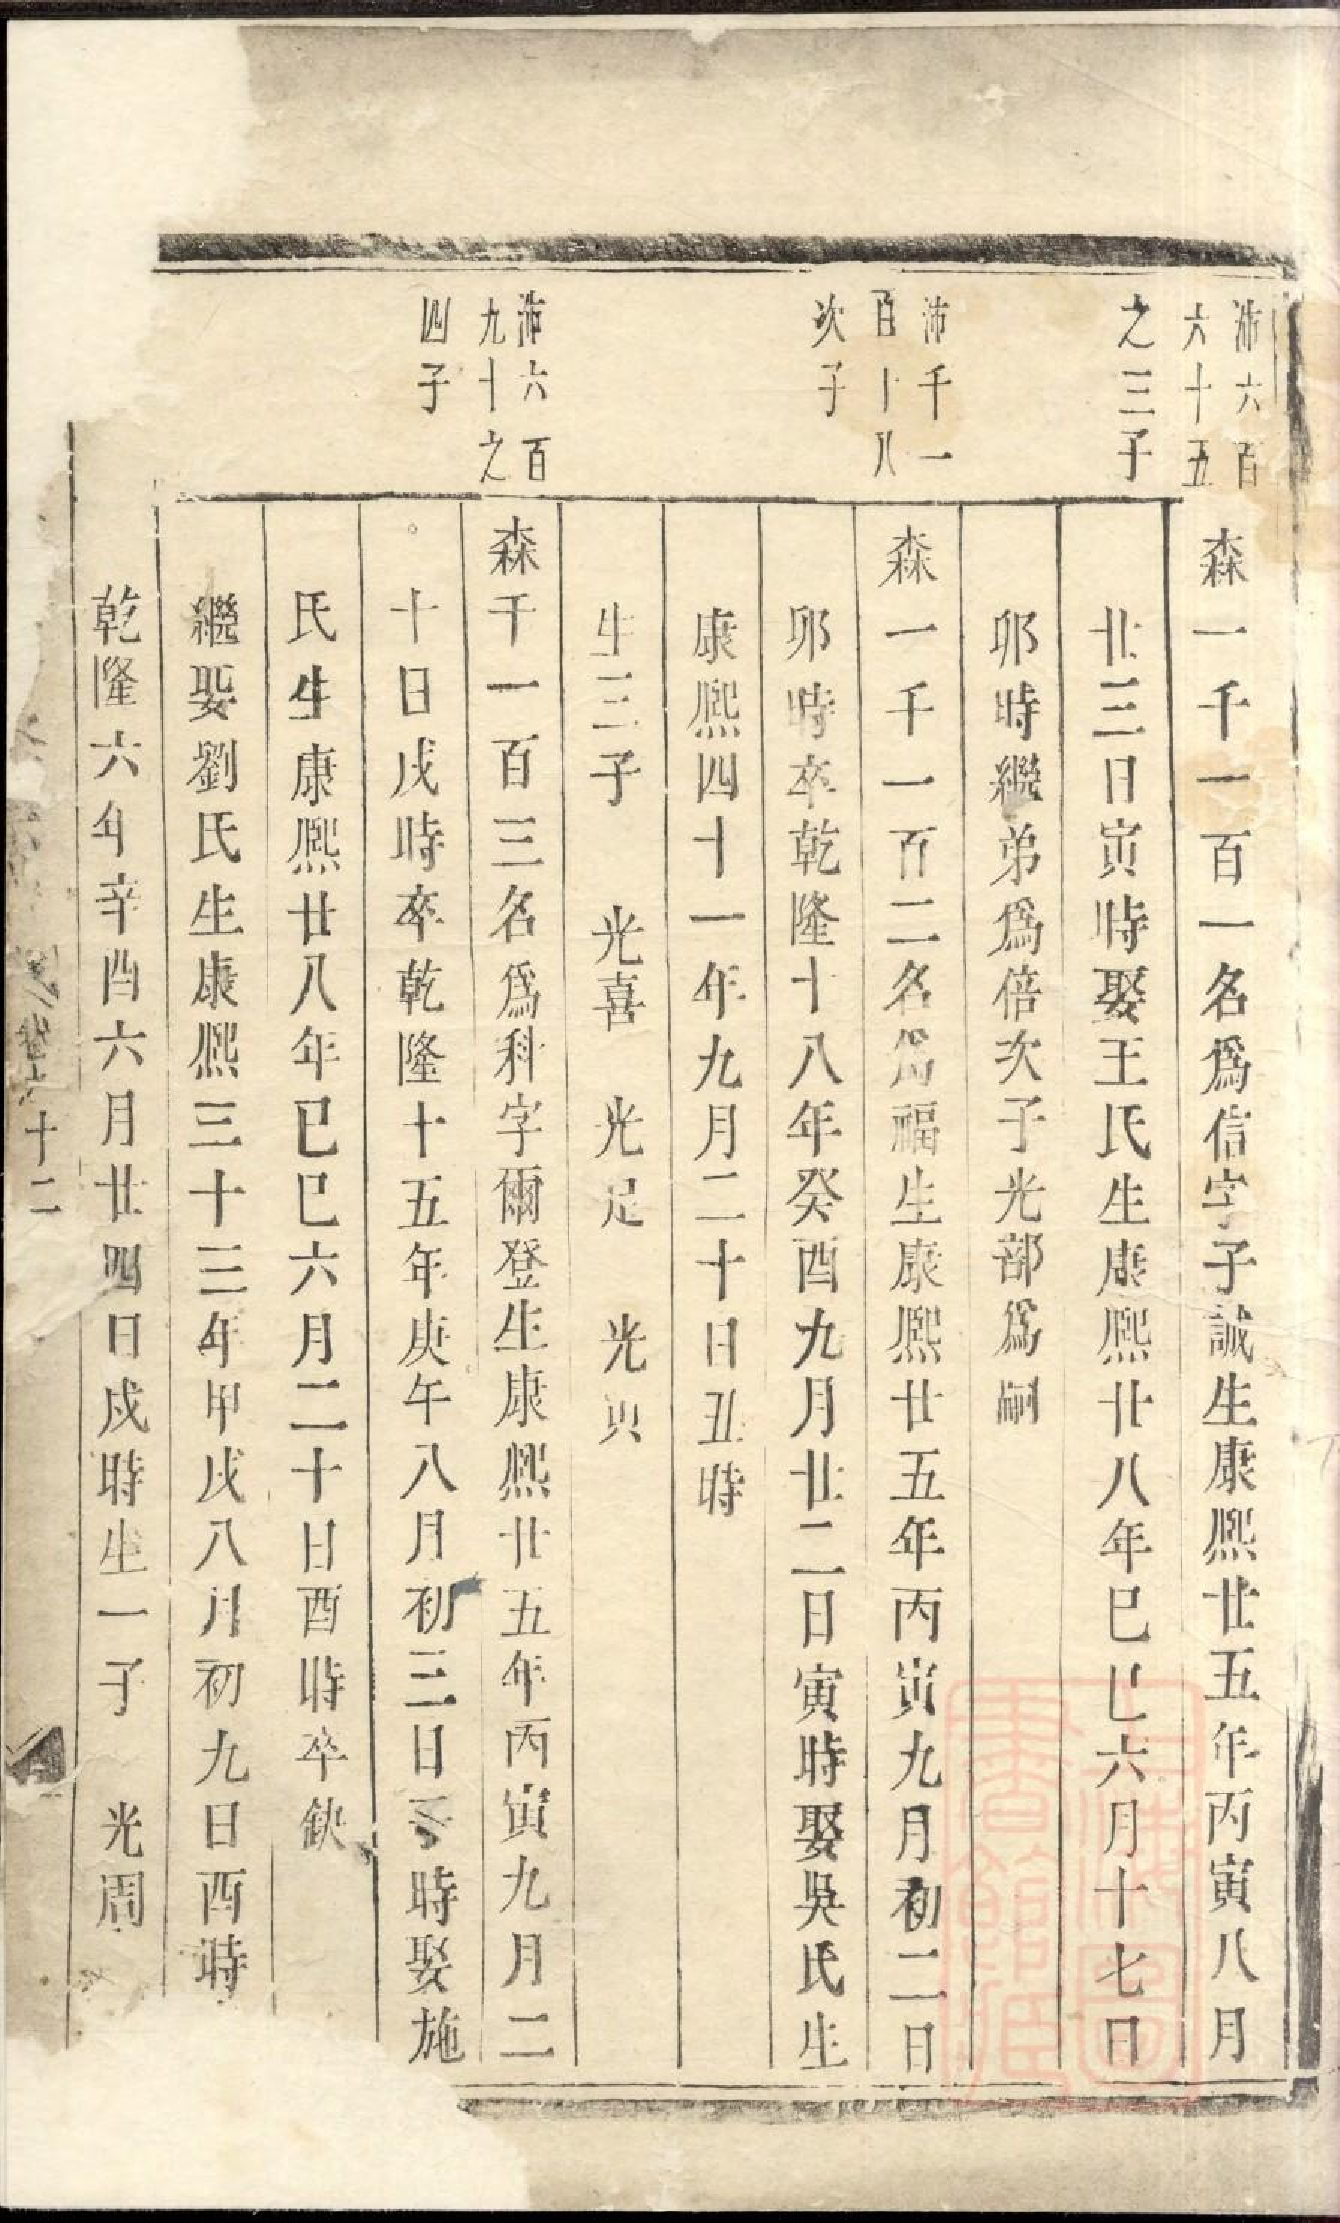 沛六百
六十五
之三子
森一千一百一名爲信字子誠生康熙廿五年丙寅八月
廿三日寅時娶王氏生康熙廿八年巳巳六月十七日
卯時繼弟爲倍次子光部爲嗣
沛千一
百十八
次子
森一千一百二名爲福生康熙廿五年丙寅九月初二日
卯時卒乾隆十八年癸酉九月廿二日寅時娶吳氏生
康熙四十一年九月二十日丑時
生三子 光喜 光足 光寅
沛六百
九十之
四子
森千一百三名爲科字爾登生康熙廿五年丙寅九月二
十日戌時卒乾隆十五年庚午八月初三日 時娶施
氏生康熙廿八年巳巳六月二十日酉時卒缺
繼娶劉氏生康熙三十三年甲戌八月初九日酉時
乾隆六年辛酉六月廿四日戌時生一子 光周
十二